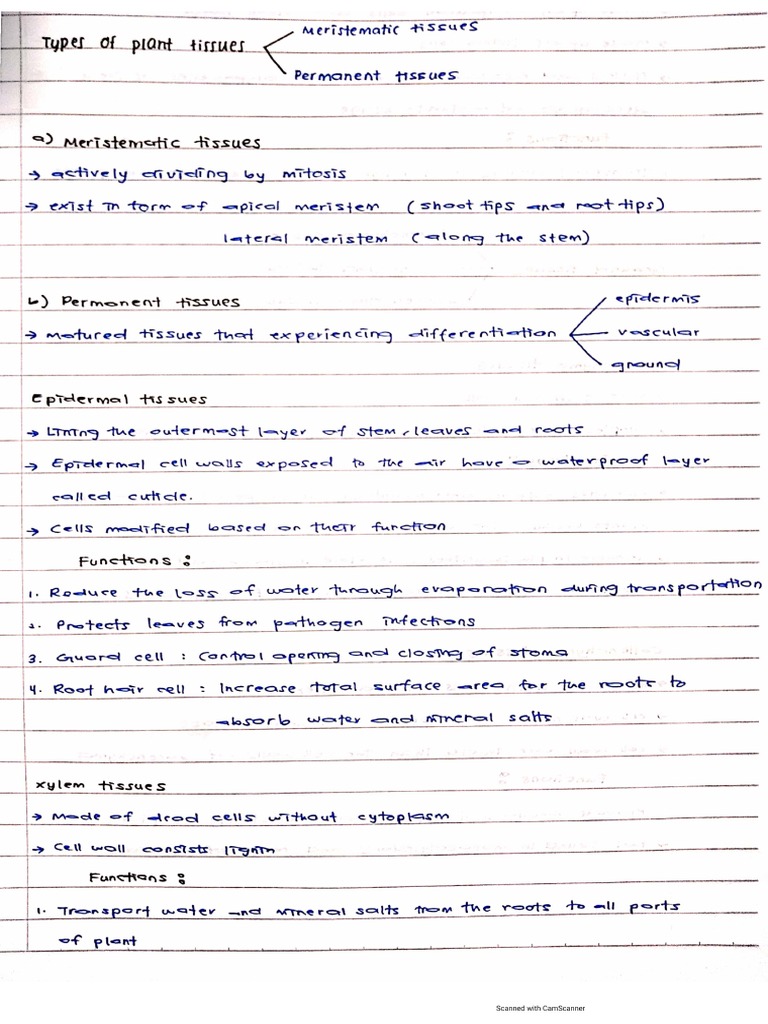 Types of plant tissues
Meristematic tissues
Permanent tissues
a) Meristematic tissues
→ actively dividing by mitosis
→ exist in form of apical meristem (shoot tips and root tips)
lateral meristem (along the stem)
b) Permanent tissues
→ matured tissues that experiencing differentiation
epidermis
vascular
ground
Epidermal tissues
→ Lining the outermost layer of stem, leaves and roots
→ Epidermal cell walls exposed to the air have a waterproof layer
called cuticle.
→ Cells modified based on their function
Functions :
1. Reduce the loss of water through evaporation during transportation
2. Protects leaves from pathogen infections
3. Guard cell : Control opening and closing of stoma
4. Root hair cell : Increase total surface area for the roots to
absorb water and mineral salts
xylem tissues
→ Made of dead cells without cytoplasm
→ Cell wall consists lignin
Functions :
1. Transport water and mineral salts from the roots to all parts
of plant
Scanned with CamScanner